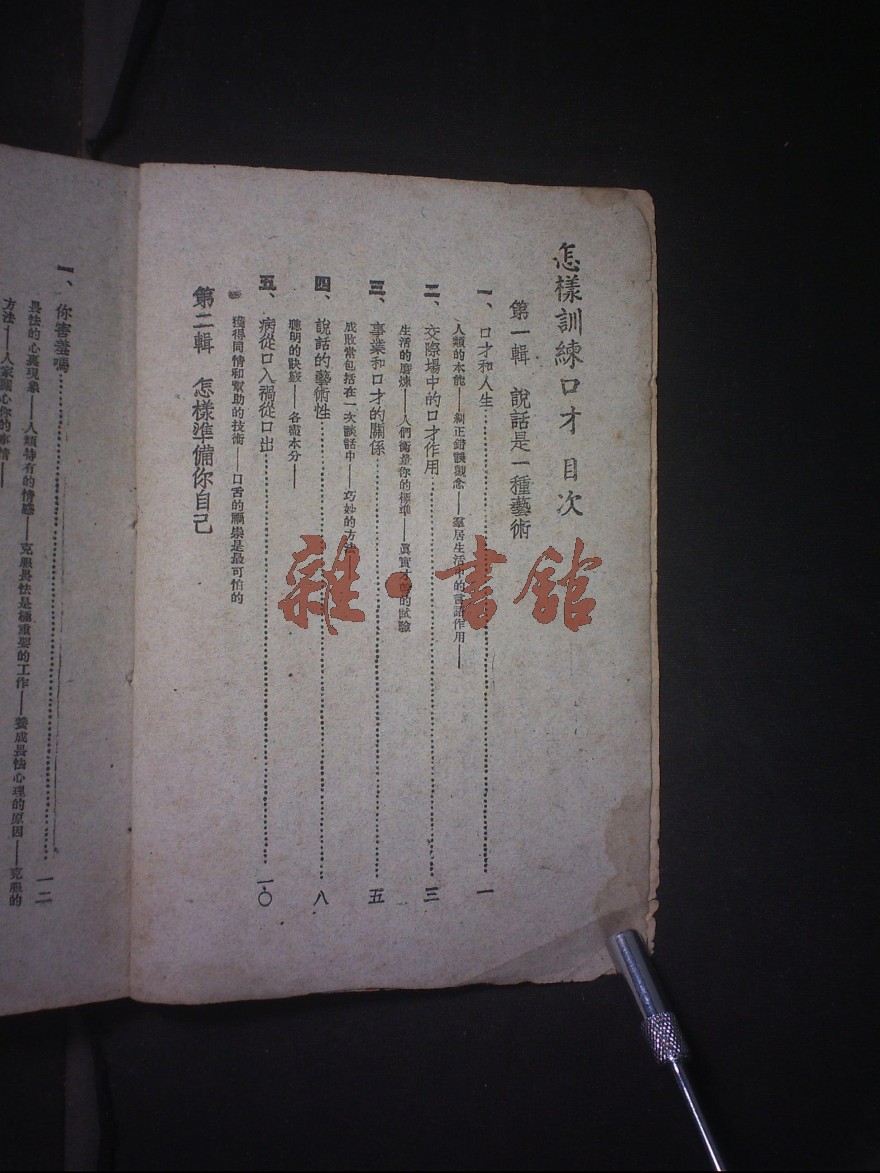 怎樣訓練口才 目次
第一輯 說話是一種藝術
一、口才和人生……一
人類的本能——糾正錯誤觀念——羣居生活中的言語作用——
二、交際場中的口才作用……三
生活的磨煉——人們衡量你的標準——眞實才的試驗
三、事業和口才的關係……五
成敗常包括在一次談話中——巧妙的方法
四、說話的藝術性……八
聰明的訣竅——各盡本分——
五、病從口入禍從口出……一〇
獲得同情和幫助的技術——口舌的禍祟是最可怕的
第二輯 怎樣準備你自己
一、你害羞嗎……一二
畏怯的心裏現象——人類特有的情感——克服畏怯是極重要的工作——養成畏怯心理的原因——克服的
方法——人家關心你的事情——
雜·書館